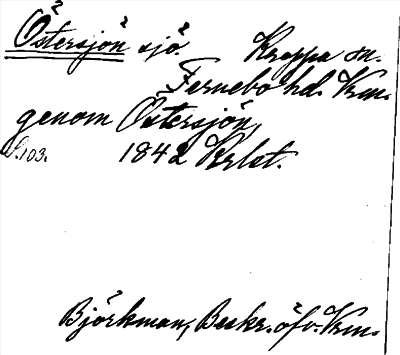 Östersjön sjö. Kroppa sn.
Fernebo hd. Vrm.
genom Östersjön,
S.103. 1842 Krlst.
Björkman, Beskr. öfv. Vrm.